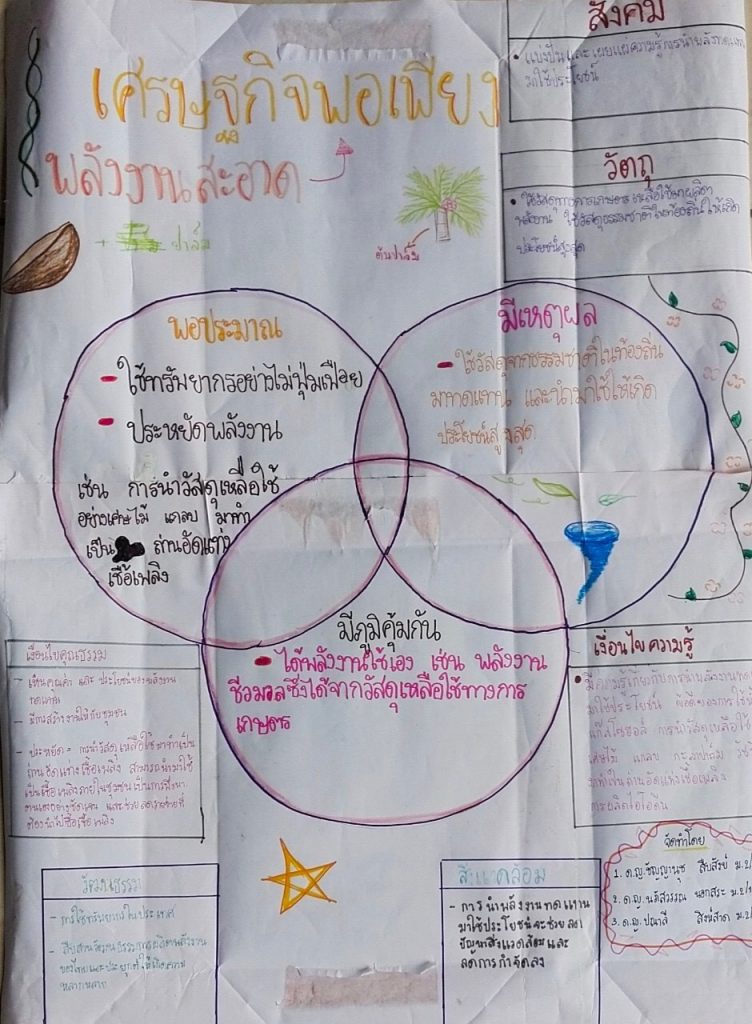 เศรษฐกิจพอเพียง
พลังงานสะอาด
ปาล์ม
ต้นปาล์ม
สังคม
• แบ่งปันและเผยแผ่ความรู้การนำพลังทดแทน
มาใช้ประโยชน์
วัตถุ
• ใช้วัสดุทางการเกษตรเหลือใช้มาผลิตา
พลังงาน ใช้วัสดุธรรมชาติในท้องถิ่นให้เกิด
ประโยชน์สูงสุด
พอประมาณ
- ใช้ทรัพยากรอย่างไม่ฟุ่มเฟือย
- ประหยัดพลังงาน
เช่น การนำวัสดุเหลือใช้
อย่างเศษไม้ แกลบ มาทำ
เป็น ถ่านอัดแท่ง
เชื้อเพลิง
มีเหตุผล
- ใช้วัสดุจากธรรมชาติในท้องถิ่น
มาทดแทน และนำมาใช้ให้เกิด
ประโยชน์สูงสุด
มีภูมิคุ้มกัน
- ได้พลังงานใช้เอง เช่น พลังงาน
ชีวมวลซึ่งได้จากวัสดุเหลือใช้ทางการ
เกษตร
เงื่อนไขคุณธรรม
- เห็นคุณค่า และ ประโยชน์ของพลังงาน
ทดแทน
- มีการสร้างงานให้กับชุมชน
- ประหยัด = การนำวัสดุเหลือใช้มาทำเป็น
ถ่านอัดแท่งเชื้อเพลิง สามารถนำมาใช้
เป็นเชื้อเพลิงภายในชุมชนเป็นการพึ่งพา
ตนเองอย่างชัดเจน และช่วยลดรายจ่ายที่
ต้องนำไปซื้อเชื้อเพลิง
เงื่อนไขความรู้
• มีความรู้เกี่ยวกับการนำพลังงานทด
มาใช้ประโยชน์ ข้อดีของการใช้น้ำ
แก๊สโซฮอล์ การนำวัสดุเหลือใช้
เศษไม้ แกลบ กะลาปาล์ม
มาทำเป็นถ่านอัดแท่งเชื้อเพลิง
การผลิตไบโอดีเซล
วัฒนธรรม
- การใช้ทรัพยากรในประเทศ
- สืบสานวัฒนธรรมการผลิตพลังงาน
ของไทยและประยุกต์ให้เกิดความ
หลากหลาย
สิ่งแวดล้อม
- การนำพลังงานทดแทน
มาใช้ประโยชน์จะช่วยลด
ปัญหาสิ่งแวดล้อมและ
ลดการกำจัดลง
จัดทำโดย
1. ด.ญ. ชัญญานุช สืบสังข์ ม.2/
2. ด.ญ. ม.2/
3. ด.ญ. ปณาลี สิงห์ลาด ม.2/